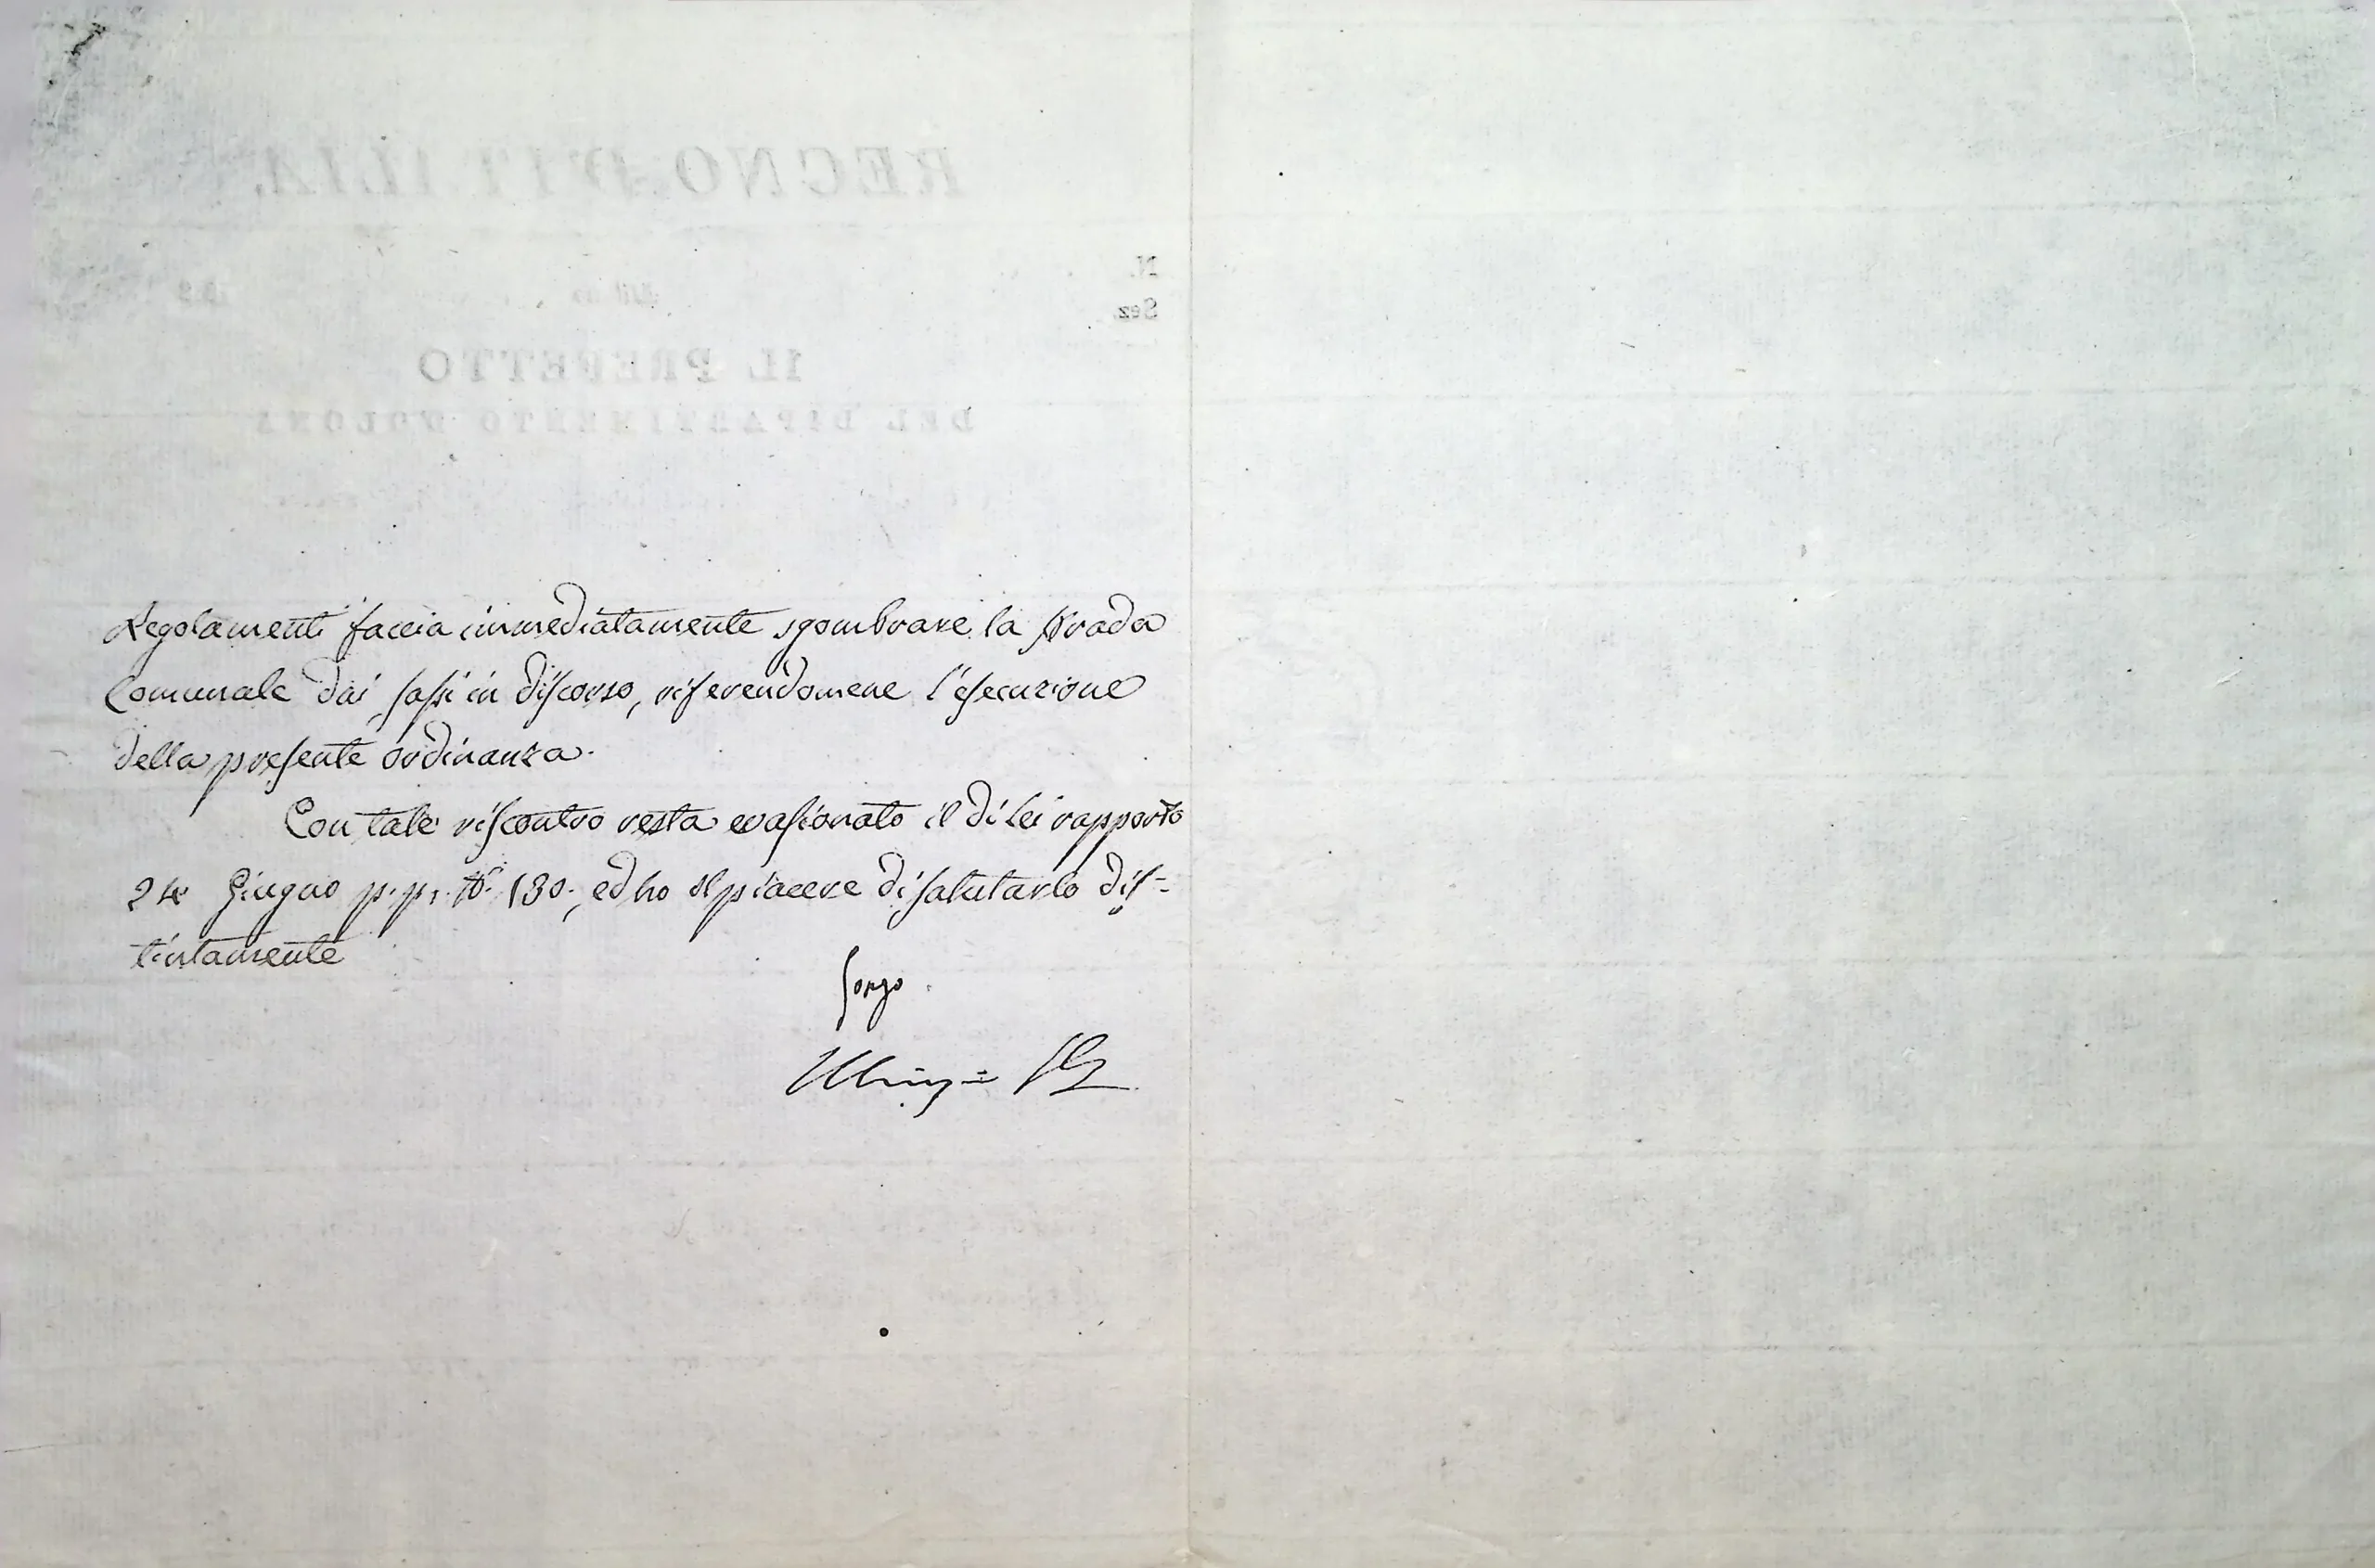 REGNO D'ITALIA.
N.
Sez.
IL PREFETTO
DEL DIPARTIMENTO D'OLONA
Regolamenti faccia immediatamente sgombrare la strada
Comunale dai sassi in discorso, riferendomene l'esecuzione
della presente ordinanza.
Con tale riscontro resta evasionato il di Lei rapporto
24 Giugno p. p. N.º 130., ed ho il piacere di salutarlo dis=
tintamente
Sorgo